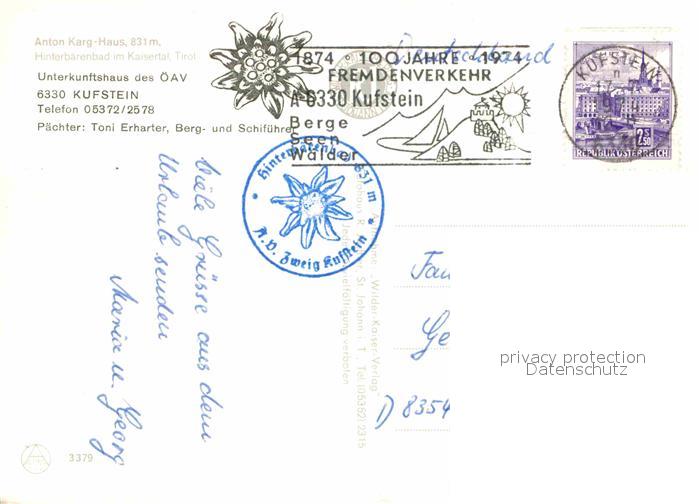 Anton Karg-Haus, 831m,
Hinterbärenbad im Kaisertal, Tirol
Unterkunftshaus des ÖAV
6330 KUFSTEIN
Telefon 05372/2578
Pächter: Toni Erharter, Berg- und Schiführer
1874 · 100 JAHRE · 1974
FREMDENVERKEHR
A-6330 Kufstein
Berge
Seen
Wälder
Deutschland
KUFSTEIN
2S50
REPUBLIK ÖSTERREICH
Hinterbärenbad 831 m
A.V. Zweig Kufstein
Viele Grüsse aus dem
Urlaub senden
Maria u. Georg
"Wilder-Kaiser-Verlag"
St. Johann i. T., Tel. (05352) 2315
Vervielfältigung verboten
Fam
Ge
D 8354
privacy protection
Datenschutz
3379